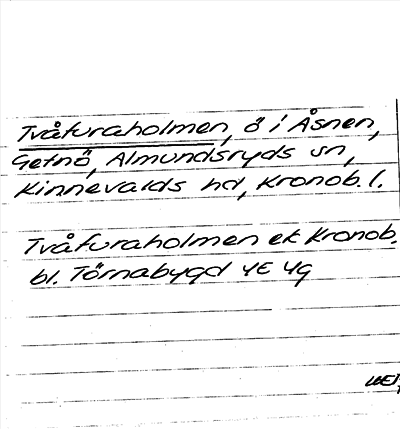 Tvåfuraholmen, ö i Åsnen,
Getnö, Almundsryds sn,
Kinnevalds hd, Kronob. l.
Tvåfuraholmen ek Kronob.
bl. Törnabygd 4E 4g